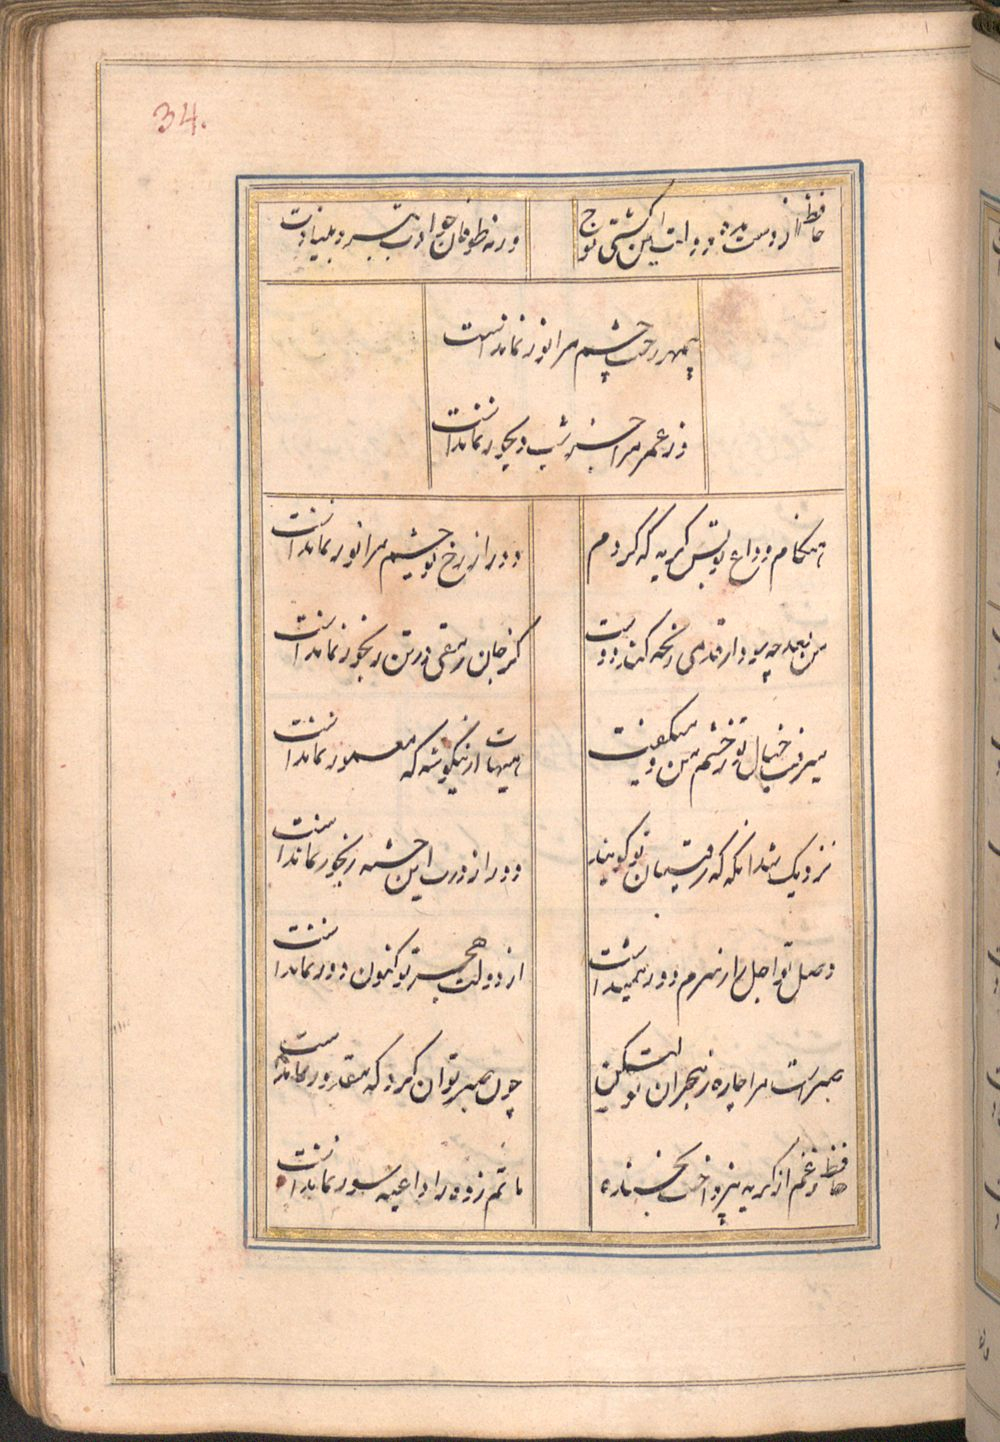 34.
حافظ از دست مده دولت این کشتی نوح
ورنه طوفان حوادث ببرد بنیادت
بیمهر رخت چشم مرا نور نماندست
وز عمر مرا جز شب دیجور نماندست
هنگام وداع تو بس گریه که کردم
دور از رخ تو چشم مرا نور نماندست
من بعد چه سود ار قدمی رنجه کند دوست
کز جان رمقی در تن رنجور نماندست
میرفت خیال تو ز چشم من و میگفت
هیهات ازین گوشه که معمور نماندست
نزدیک شد آنکه که رقیبان تو گویند
دور از درت این خسته رنجور نماندست
وصل تو اجل را ز سرم دور همیداشت
از دولت هجر تو کنون دور نماندست
صبرست مرا چاره ز هجران تو لیکن
چون صبر توان کرد که مقدور نماندست
حافظ ز غم از گریه نپرداخت بخنده
ماتم زده را داعیه سور نماندست